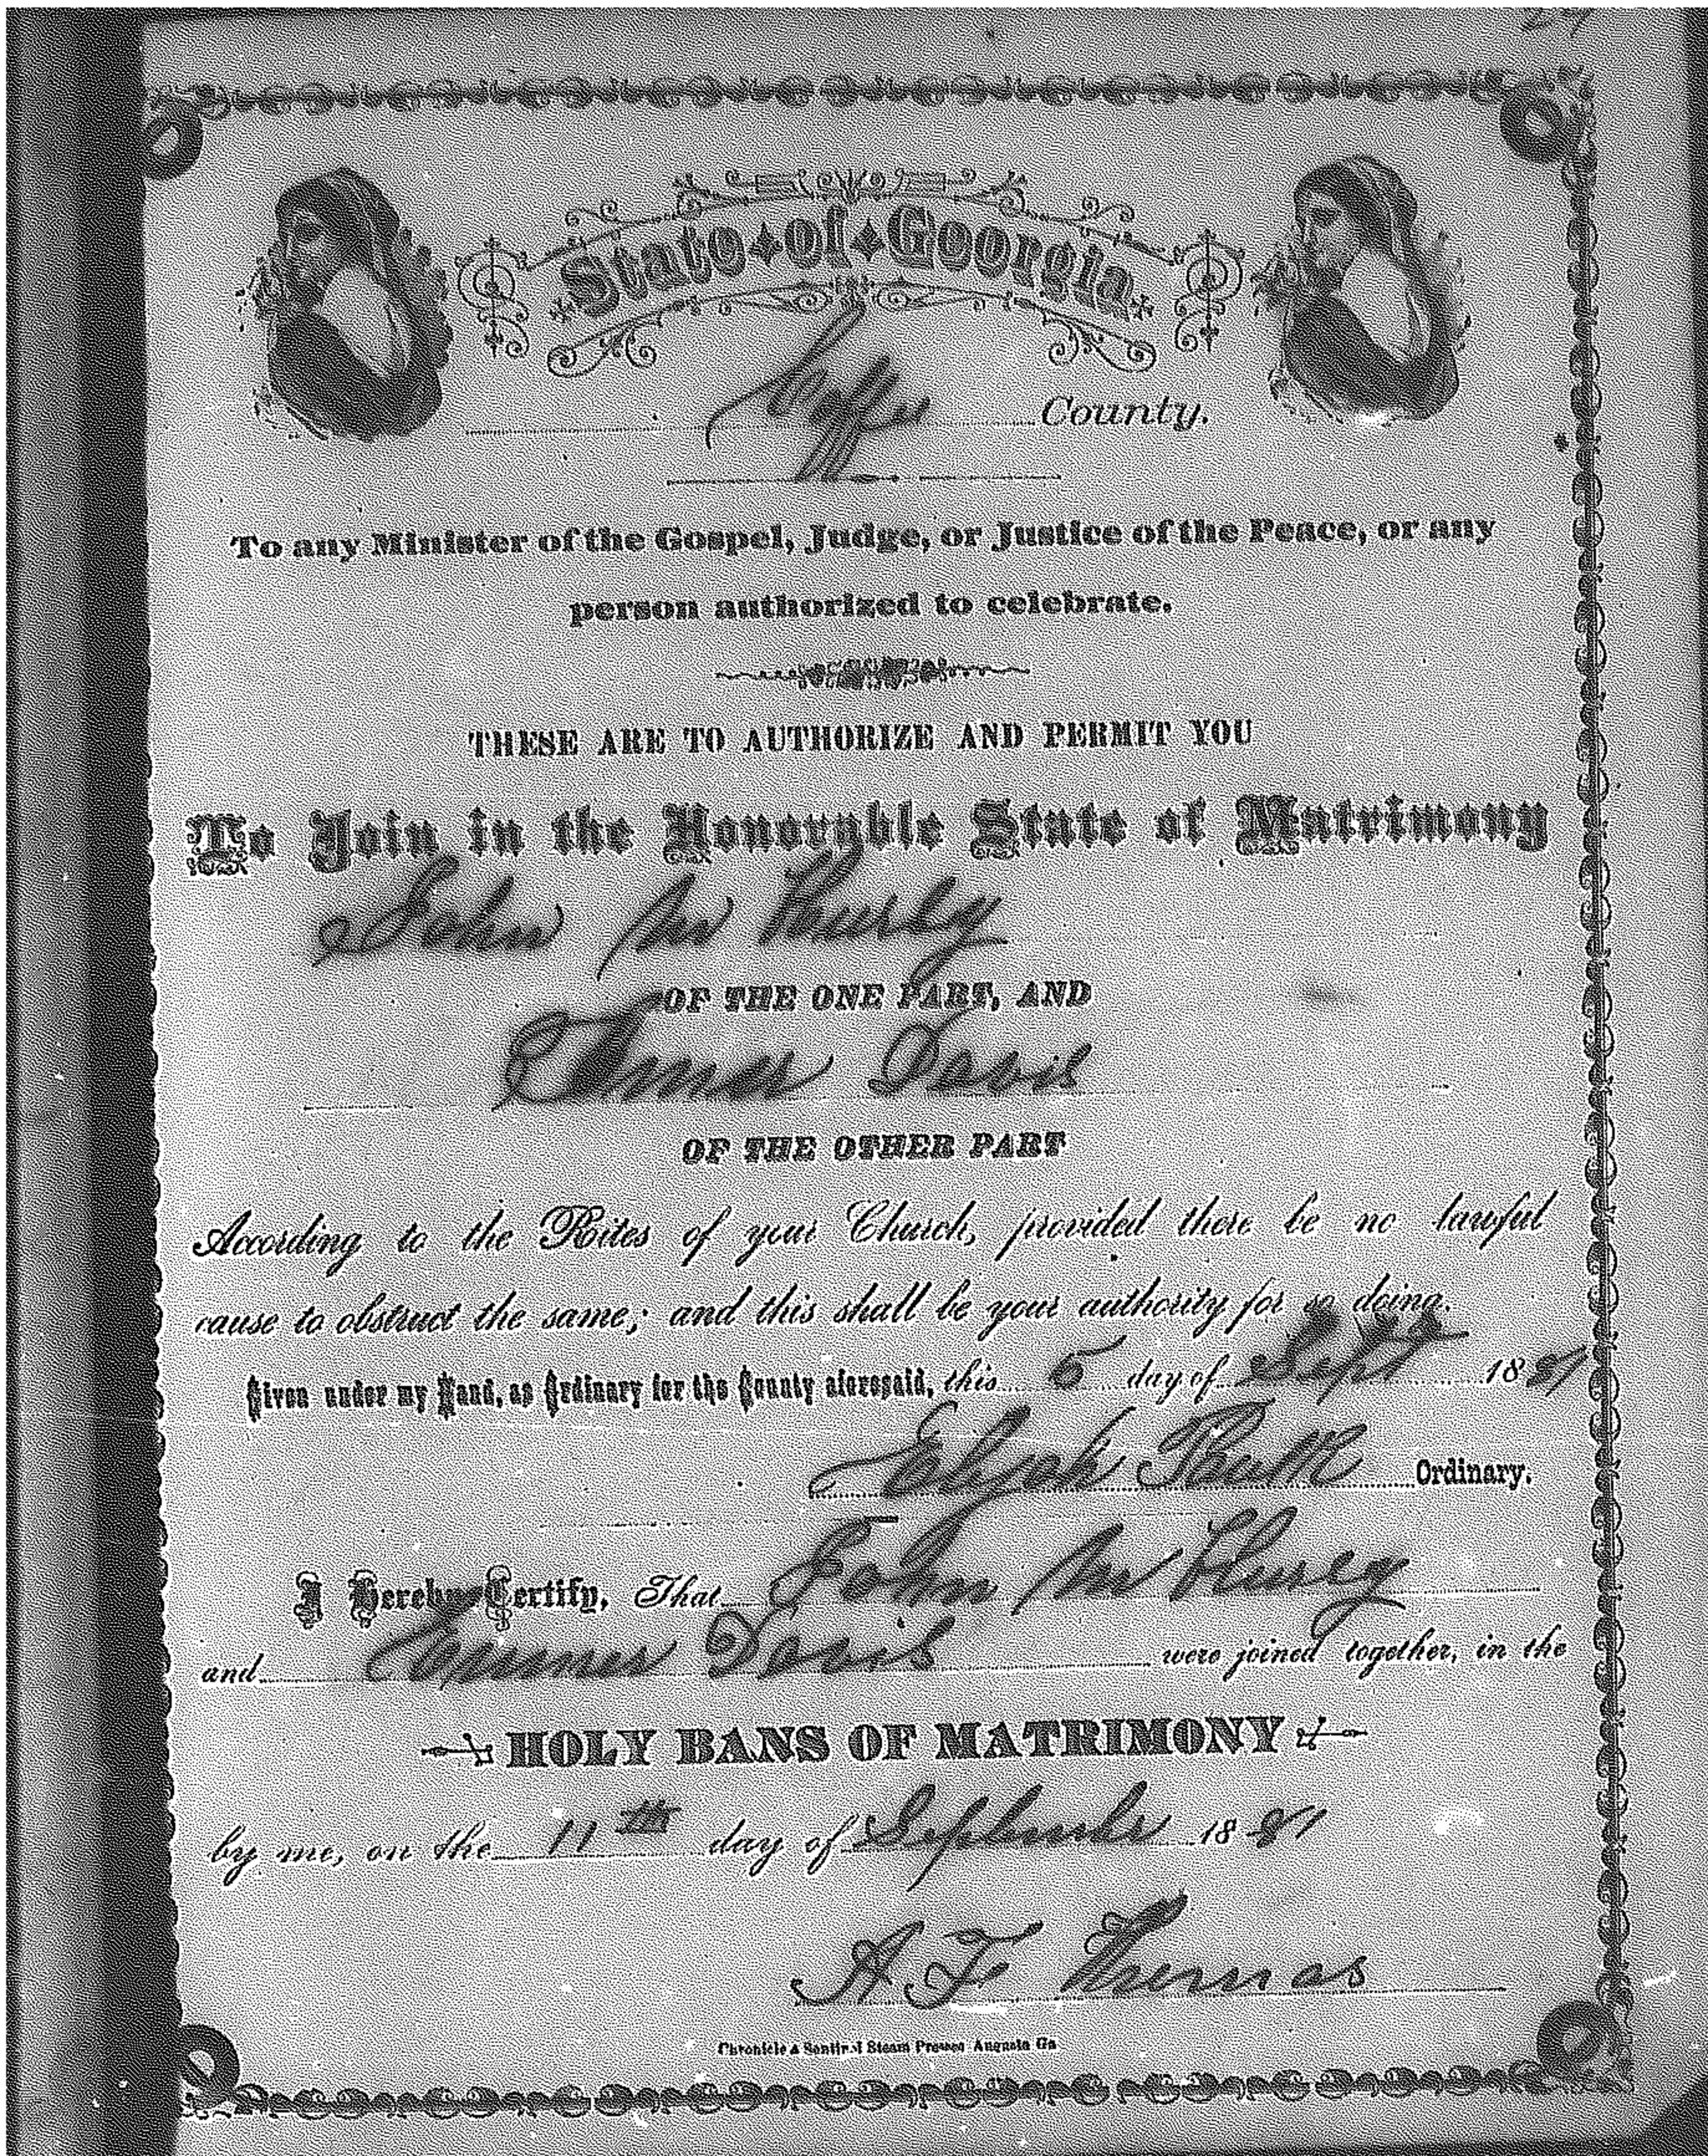 State of Georgia
Coffee County.
To any Minister of the Gospel, Judge, or Justice of the Peace, or any
person authorized to celebrate.
THESE ARE TO AUTHORIZE AND PERMIT YOU
To Join in the Honorable State of Matrimony
John M
OF THE ONE PART, AND
Davis
OF THE OTHER PART
According to the Rites of your Church, provided there be no lawful
cause to obstruct the same; and this shall be your authority for so doing.
Given under my Hand, as Ordinary for the County aforesaid, this 5 day of Sept 1881
Elijah Ordinary.
I Hereby Certify, That John M
and Davis were joined together, in the
HOLY BANS OF MATRIMONY
by me, on the 11th day of September 1881
A. F. Thomas
Chronicle & Sentinel Steam Presses Augusta Ga